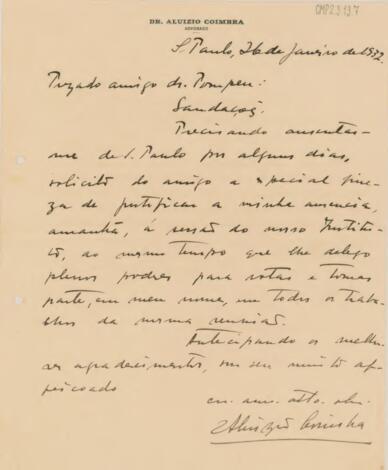 CMP2.3.19.7
DR. ALUIZIO COIMBRA
ADVOGADO
S. Paulo, 26 de Janeiro de 1932.
Prezado amigo dr. Pompeu:
Saudações.
Precisando ausentar-
me de S. Paulo por alguns dias,
solicito do amigo a especial fine-
za de justificar a minha ausencia,
amanhã, á sessão do nosso Institu-
to, ao mesmo tempo que lhe delego
plenos poderes para votar e tomar
parte, em meu nome, em todos os traba-
lhos da mesma reunião.
Antecipando os melho-
res agradecimentos, sou seu muito af-
feiçoado
am. atto. obr.
Aluizio Coimbra